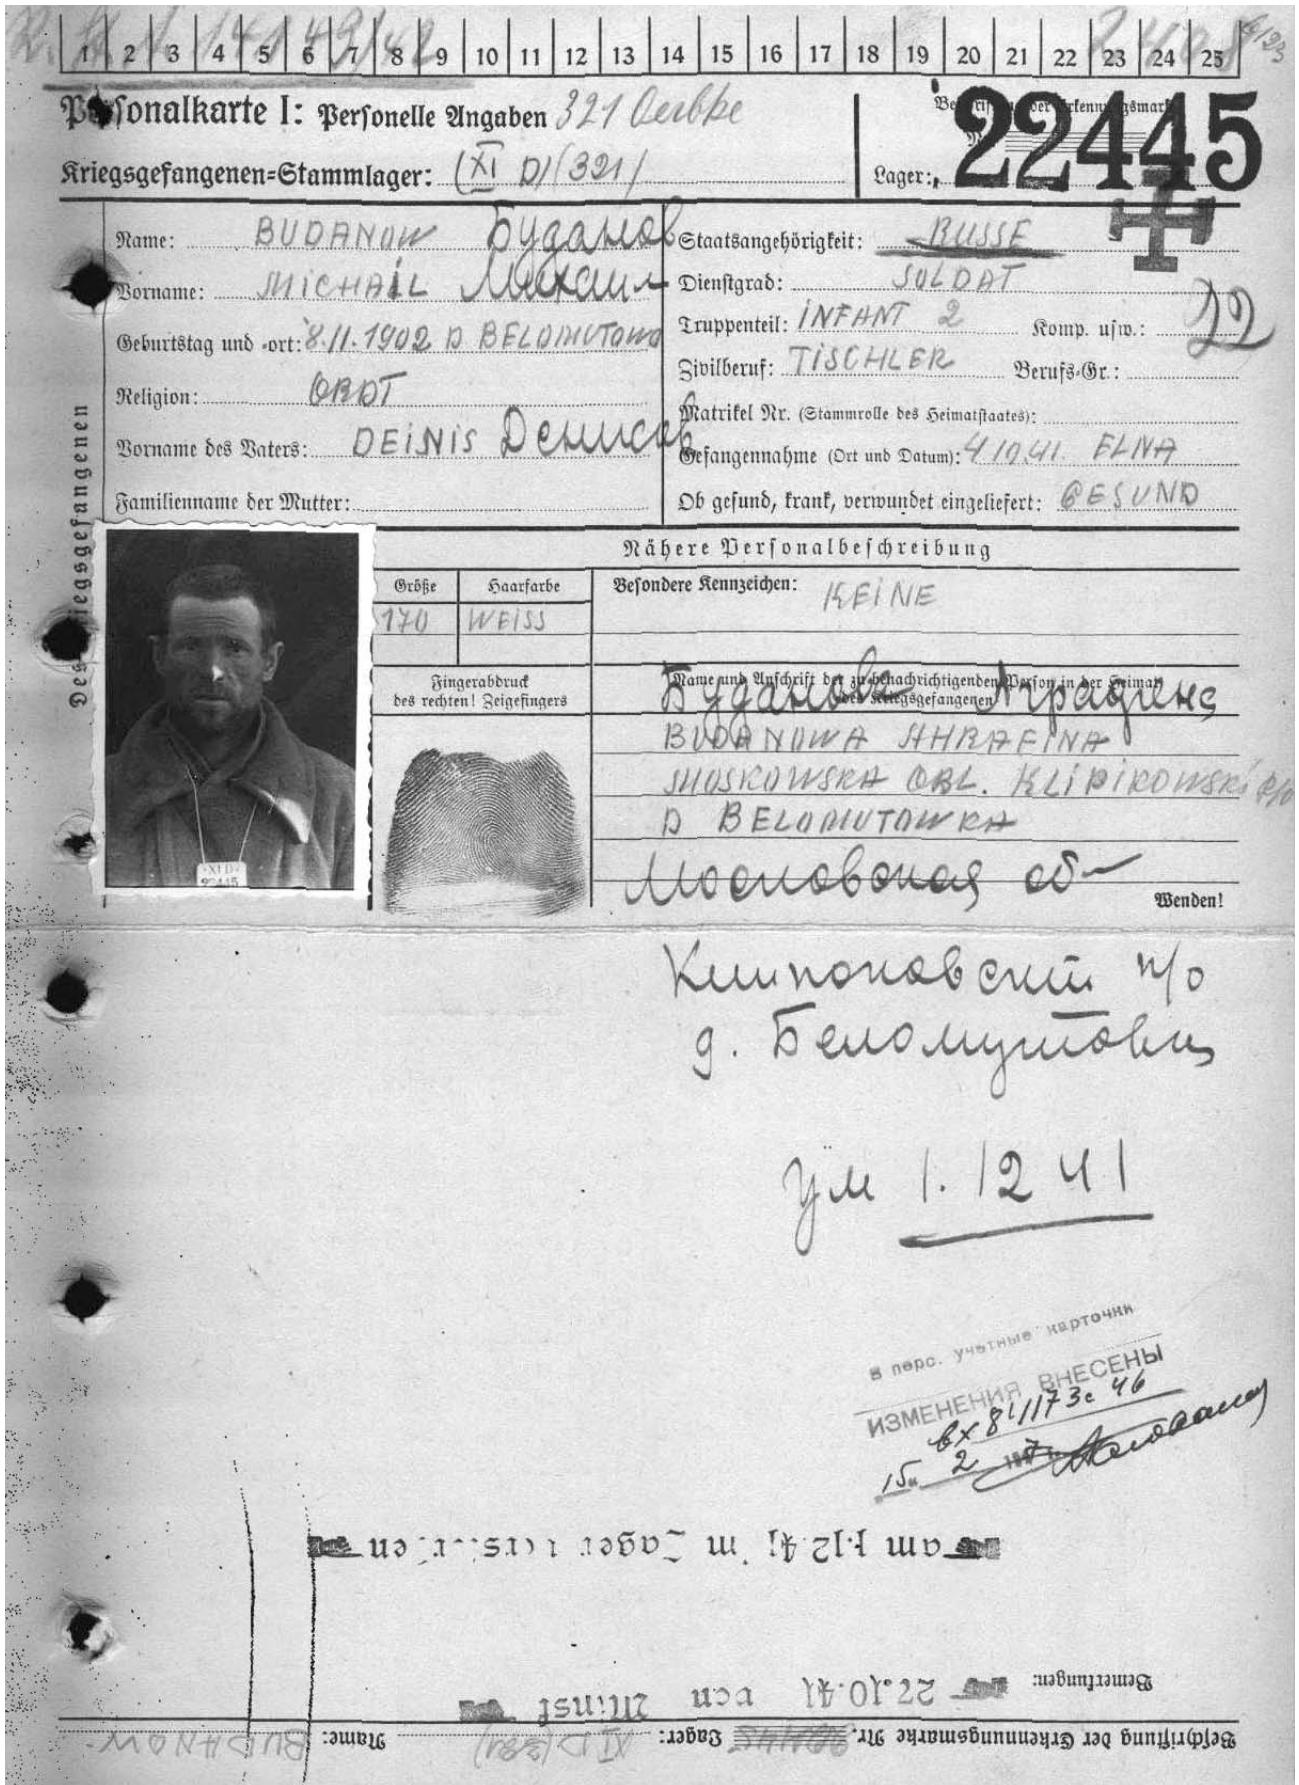 1 2 3 4 5 6 7 8 9 10 11 12 13 14 15 16 17 18 19 20 21 22 23 24 25
Personalkarte I: Personelle Angaben 321 Oerbke
Kriegsgefangenen=Stammlager: (XI D/(321)
Beschriftung der Erkennungsmarke
22445
Lager:
Des Kriegsgefangenen
Name: BUDANOW Буданов
Vorname: MICHAIL Михаил
Geburtstag und -ort: 8.11.1902 D BELOMUTOWO
Religion: ORDT
Vorname des Vaters: DEINIS Денисов
Familienname der Mutter:
Staatsangehörigkeit: RUSSE
Dienstgrad: SOLDAT
Truppenteil: INFANT 2 Komp. usw.:
22
Zivilberuf: TISCHLER Berufs-Gr.:
Matrikel Nr. (Stammrolle des Heimatstaates):
Gefangennahme (Ort und Datum): 4 10.41. ELNA
Ob gesund, krank, verwundet eingeliefert: GESUND
Nähere Personalbeschreibung
Größe Haarfarbe
170 WEISS
Besondere Kennzeichen: KEINE
Fingerabdruck
des rechten! Zeigefingers
Name und Anschrift der zu benachrichtigenden Person in der Heimat
des Kriegsgefangenen
Буданова
BUDANOWA AHRAFINA
MOSKOWSKA OBL. KLIPIKOWSKI
D BELOMUTOWKA
Московская об
Wenden!
XI D
22445
п/о
д.
ум 1. 12 41
В перс. учетные карточки
ИЗМЕНЕНИЯ ВНЕСЕНЫ
вх
15 2
am 1.12.41 im Lager verstorben
Bemerkungen: 27.10.41 von Minsk
Beschriftung der Erkennungsmarke Nr. 22445 Lager: XI D (321) Name: BUDANOW